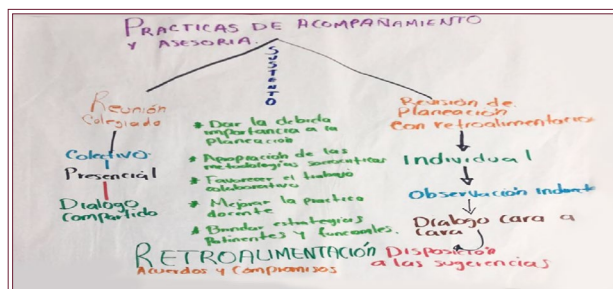 PRACTICAS DE ACOMPAÑAMIENTO
Y ASESORIA.
SUSTENTO
Reunión
Colegiado
Colectivo
Presencial
Dialogo
Compartido
* Dar la debida
importancia a la
Planeación
* Apropiación de las
metodologias
* Favorecer el trabajo
colaborativo
* Mejorar la practica
docente
* Brindar estrategias
y funcionales.
Revisión de
Planeación
con retroalimentación
Individual
Observación
Dialogo cara a
cara
RETROALIMENTACIÓN
Acuerdos y Compromisos
DISPOSICIÓN
a las sugerencias